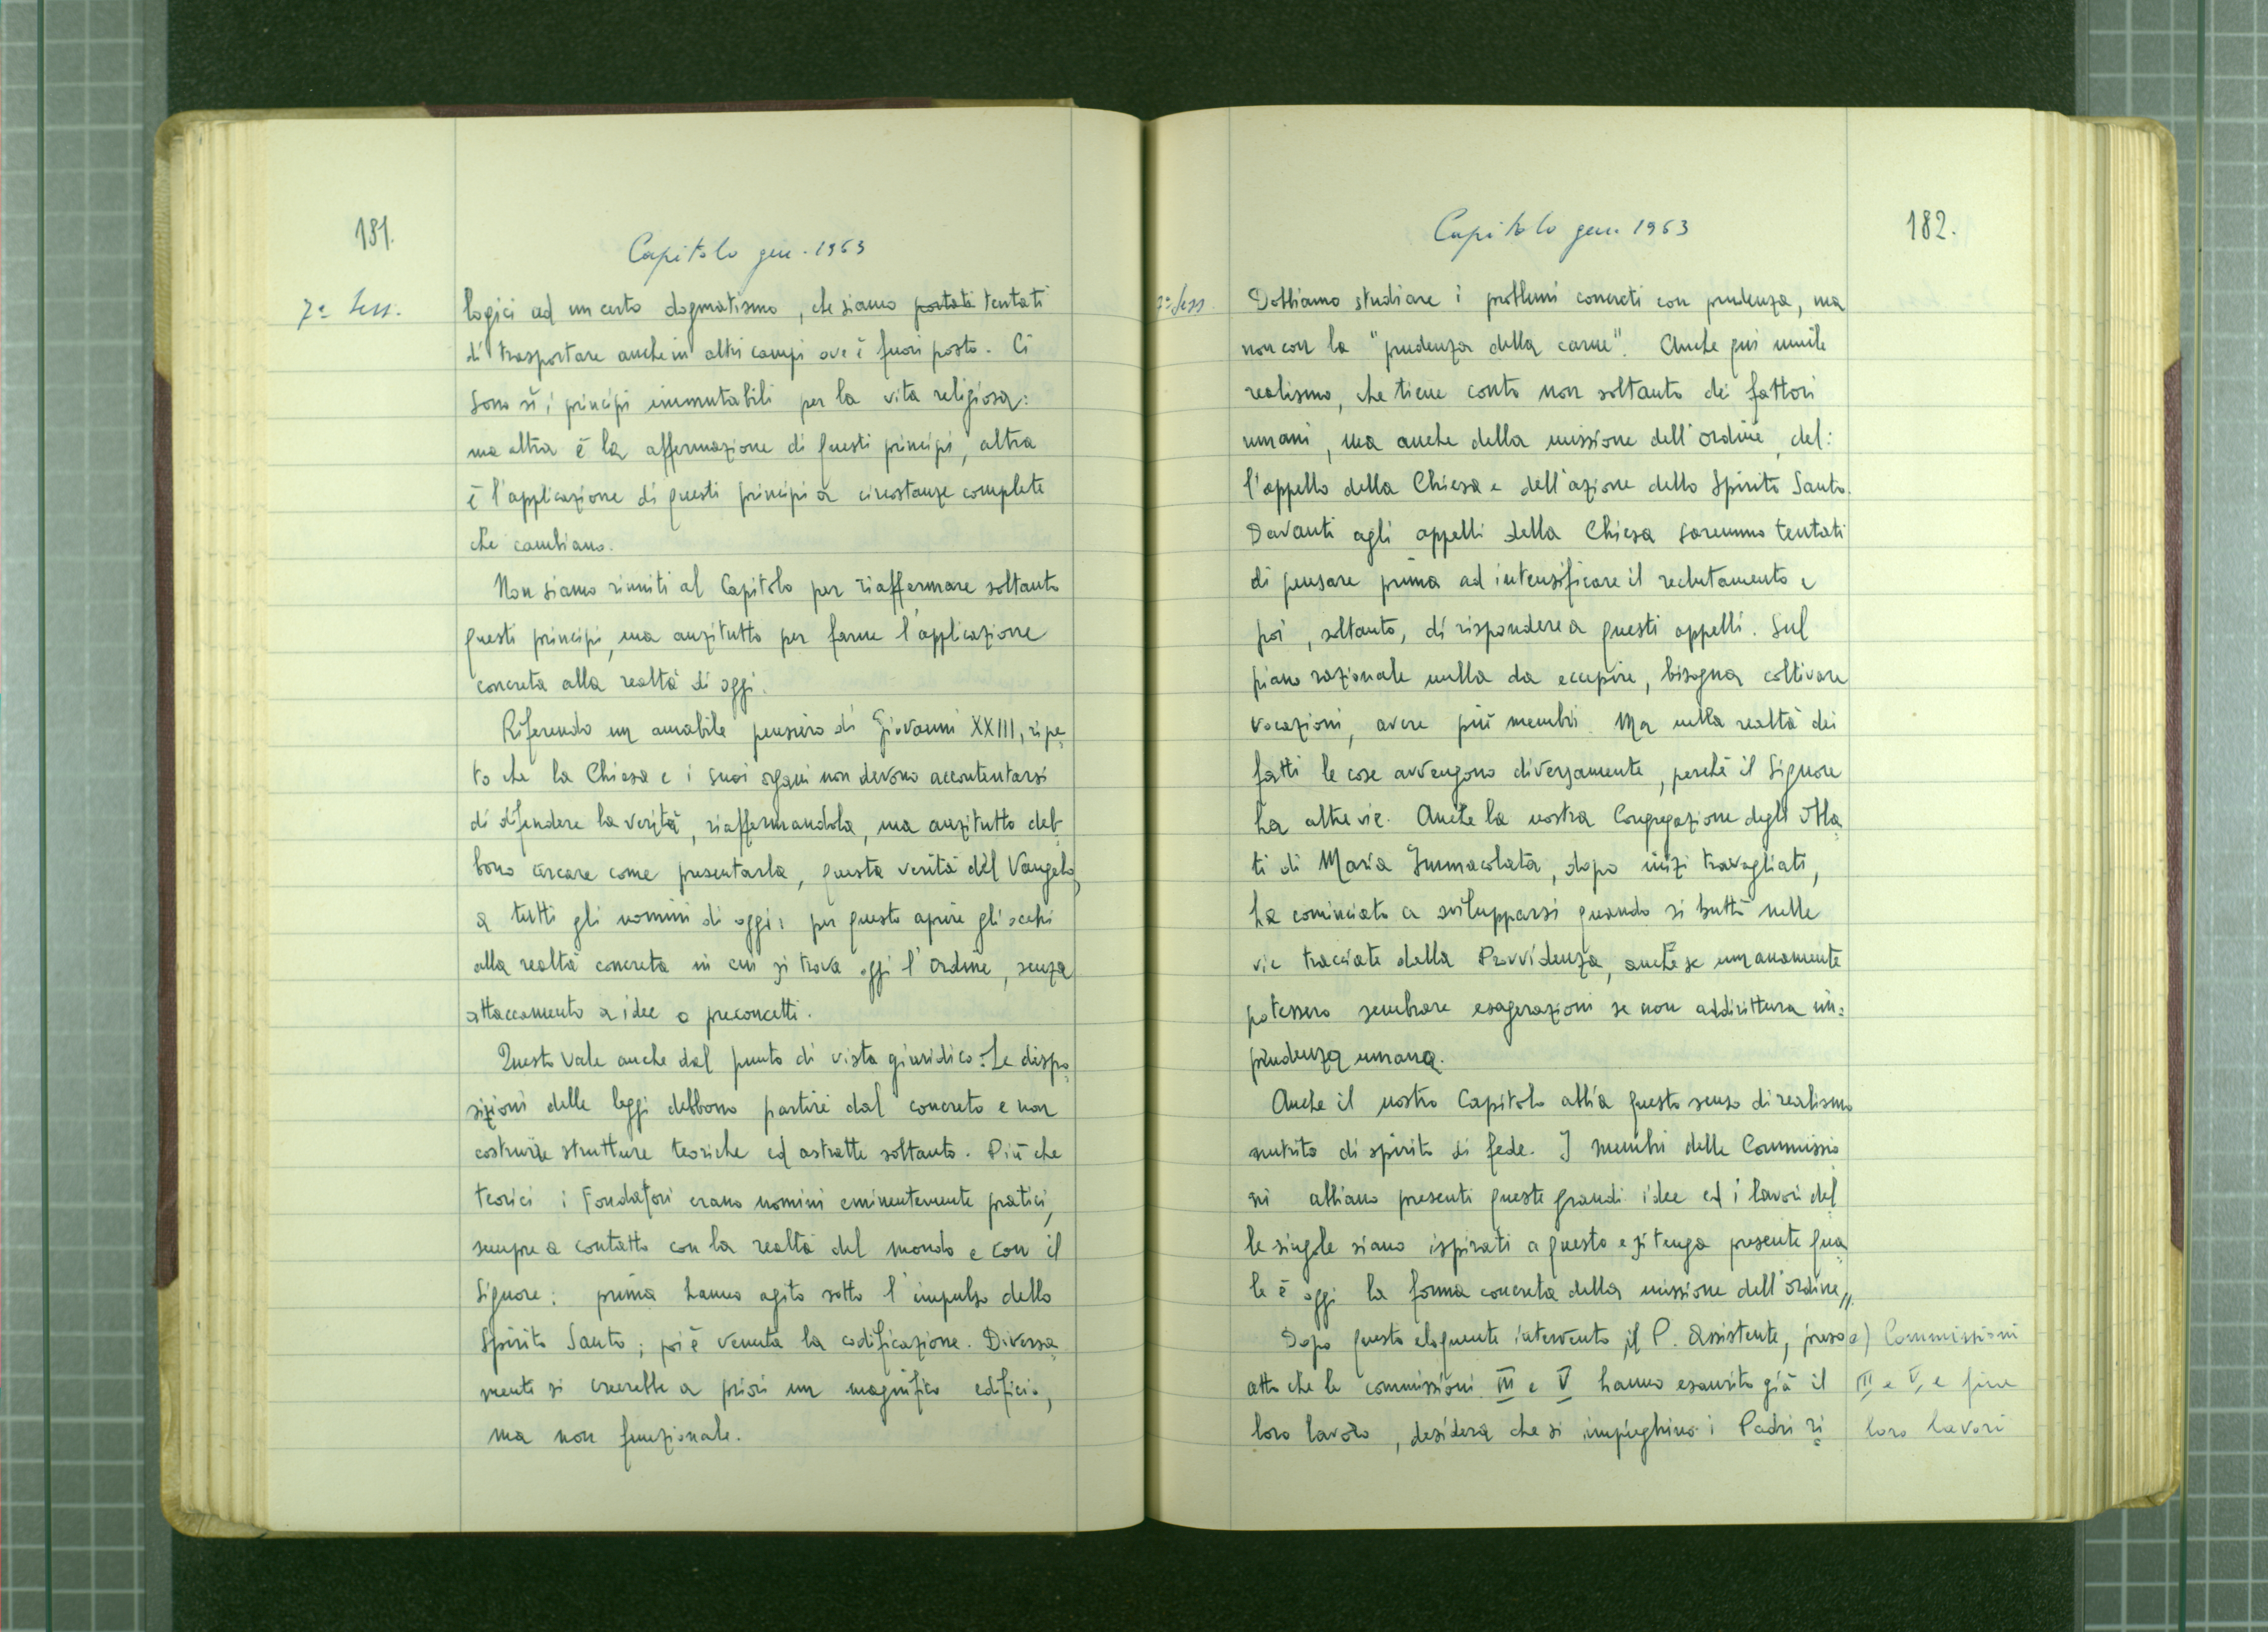 181.
Capitolo gen. 1963
7ª Sess.
logici ad un certo dogmatismo, che siamo portati tentati
di trasportare anche in altri campi ove è fuori posto. Ci
sono sì, i principi immutabili per la vita religiosa:
ma altra è la affermazione di questi principi, altra
è l'applicazione di questi principi a circostanze complete
che cambiano.
Non siamo riuniti al Capitolo per riaffermare soltanto
questi principi, ma anzitutto per farne l'applicazione
concreta alla realtà di oggi.
Riferendo un amabile pensiero di Giovanni XXIII, ripe-
to che la Chiesa e i suoi organi non devono accontentarsi
di difendere la verità, riaffermandola, ma anzitutto deb-
bono cercare come presentarla, questa verità del Vangelo,
a tutti gli uomini di oggi: per questo aprire gli occhi
alla realtà concreta in cui si trova oggi l'Ordine, senza
attaccamento a idee o preconcetti.
Questo vale anche dal punto di vista giuridico: Le dispo-
sizioni delle leggi debbono partire dal concreto e non
costruire strutture teoriche ed astratte soltanto. Più che
teorici i Fondatori erano uomini eminentemente pratici,
sempre a contatto con la realtà del mondo e con il
Signore: prima hanno agito sotto l'impulso dello
Spirito Santo; poi è venuta la codificazione. Diversa-
mente si creerebbe a priori un magnifico edificio,
ma non funzionale.
Capitolo gen. 1963
182.
7ª Sess.
Dobbiamo studiare i problemi concreti con prudenza, ma
non con la "prudenza della carne". Anche qui umile
realismo, che tiene conto non soltanto dei fattori
umani, ma anche della missione dell'Ordine, del:
l'appello della Chiesa e dell'azione dello Spirito Santo.
Davanti agli appelli della Chiesa saremmo tentati
di pensare prima ad intensificare il reclutamento e
poi, soltanto, di rispondere a questi appelli. Sul
piano razionale nulla da eccepire, bisogna coltivare
vocazioni, avere più membri. Ma nella realtà dei
fatti le cose avvengono diversamente, perchè il Signore
ha altre vie. Anche la nostra Congregazione degli Obla-
ti di Maria Immacolata, dopo inizi travagliati,
ha cominciato a svilupparsi quando si buttò nelle
vie tracciate dalla Provvidenza, anche se umanamente
potessero sembrare esagerazioni se non addirittura im:
prudenza umana.
Anche il nostro Capitolo abbia questo senso di realismo
nutrito di spirito di fede. I membri delle Commissio
ni abbiano presenti queste grandi idee ed i lavori del
le singole siano ispirati a questo e si tenga presente qua
le è oggi la forma concreta della missione dell'Ordine„.
Dopo questo eloquente intervento, il P. Assistente, preso
atto che le commissioni III e V hanno esaurito già il
loro lavoro, desidera che si impieghino i Padri ri
e) Commissioni
III e V, e fine
loro lavori